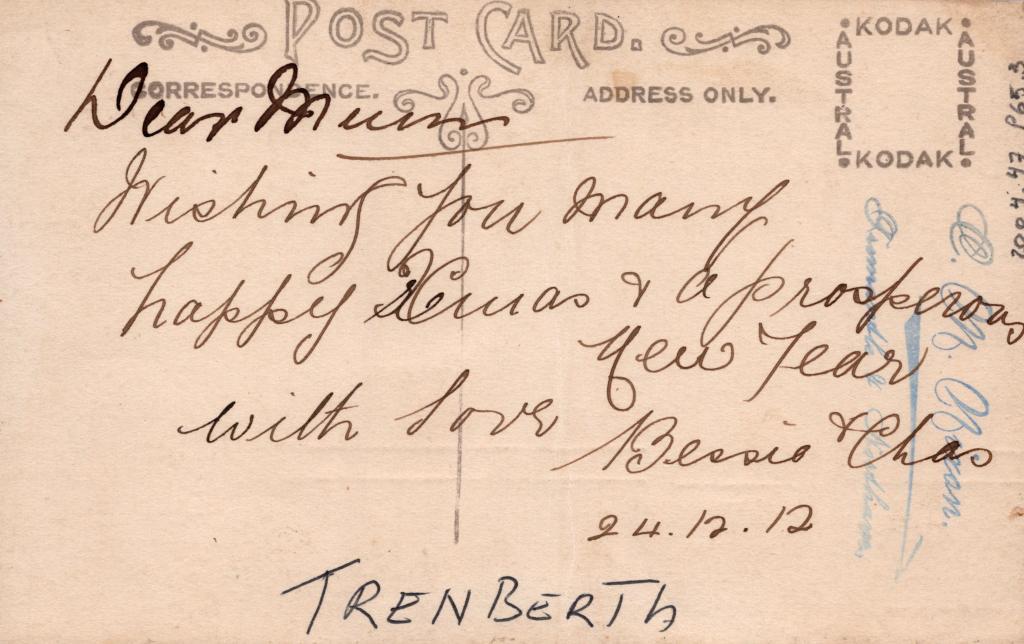 POST CARD.
CORRESPONDENCE.
ADDRESS ONLY.
KODAK
AUSTRAL
AUSTRAL
KODAK
Dear Mum
Wishing you many
happy Xmas & a prosperous
New Year
with love
Bessie & Chas
24.12.12
TRENBERTH
C. M. Nixan.